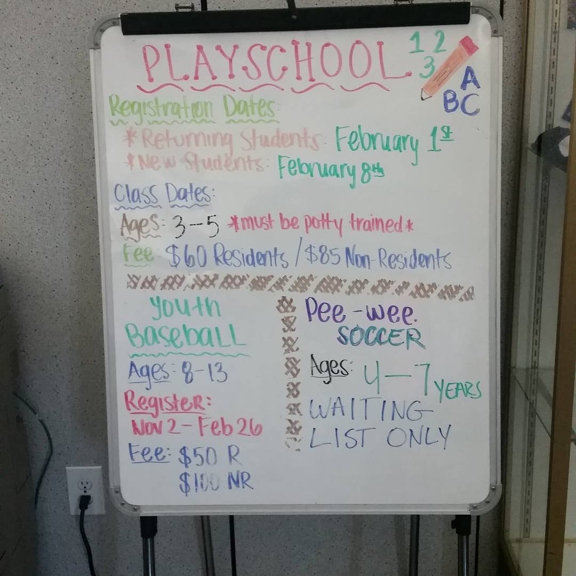 PLAYSCHOOL
1 2
3
A
B C
Registration Dates:
*Returning Students: February 1st
*New Students: February 8th
Class Dates:
Ages: 3-5 *must be potty trained*
Fee $60 Residents / $85 Non-Residents
Youth
Baseball
Ages: 8-13
Register:
Nov 2 - Feb 26
Fee: $50 R
$100 NR
Pee-wee
SOCCER
Ages: 4-7 YEARS
WAITING
LIST ONLY